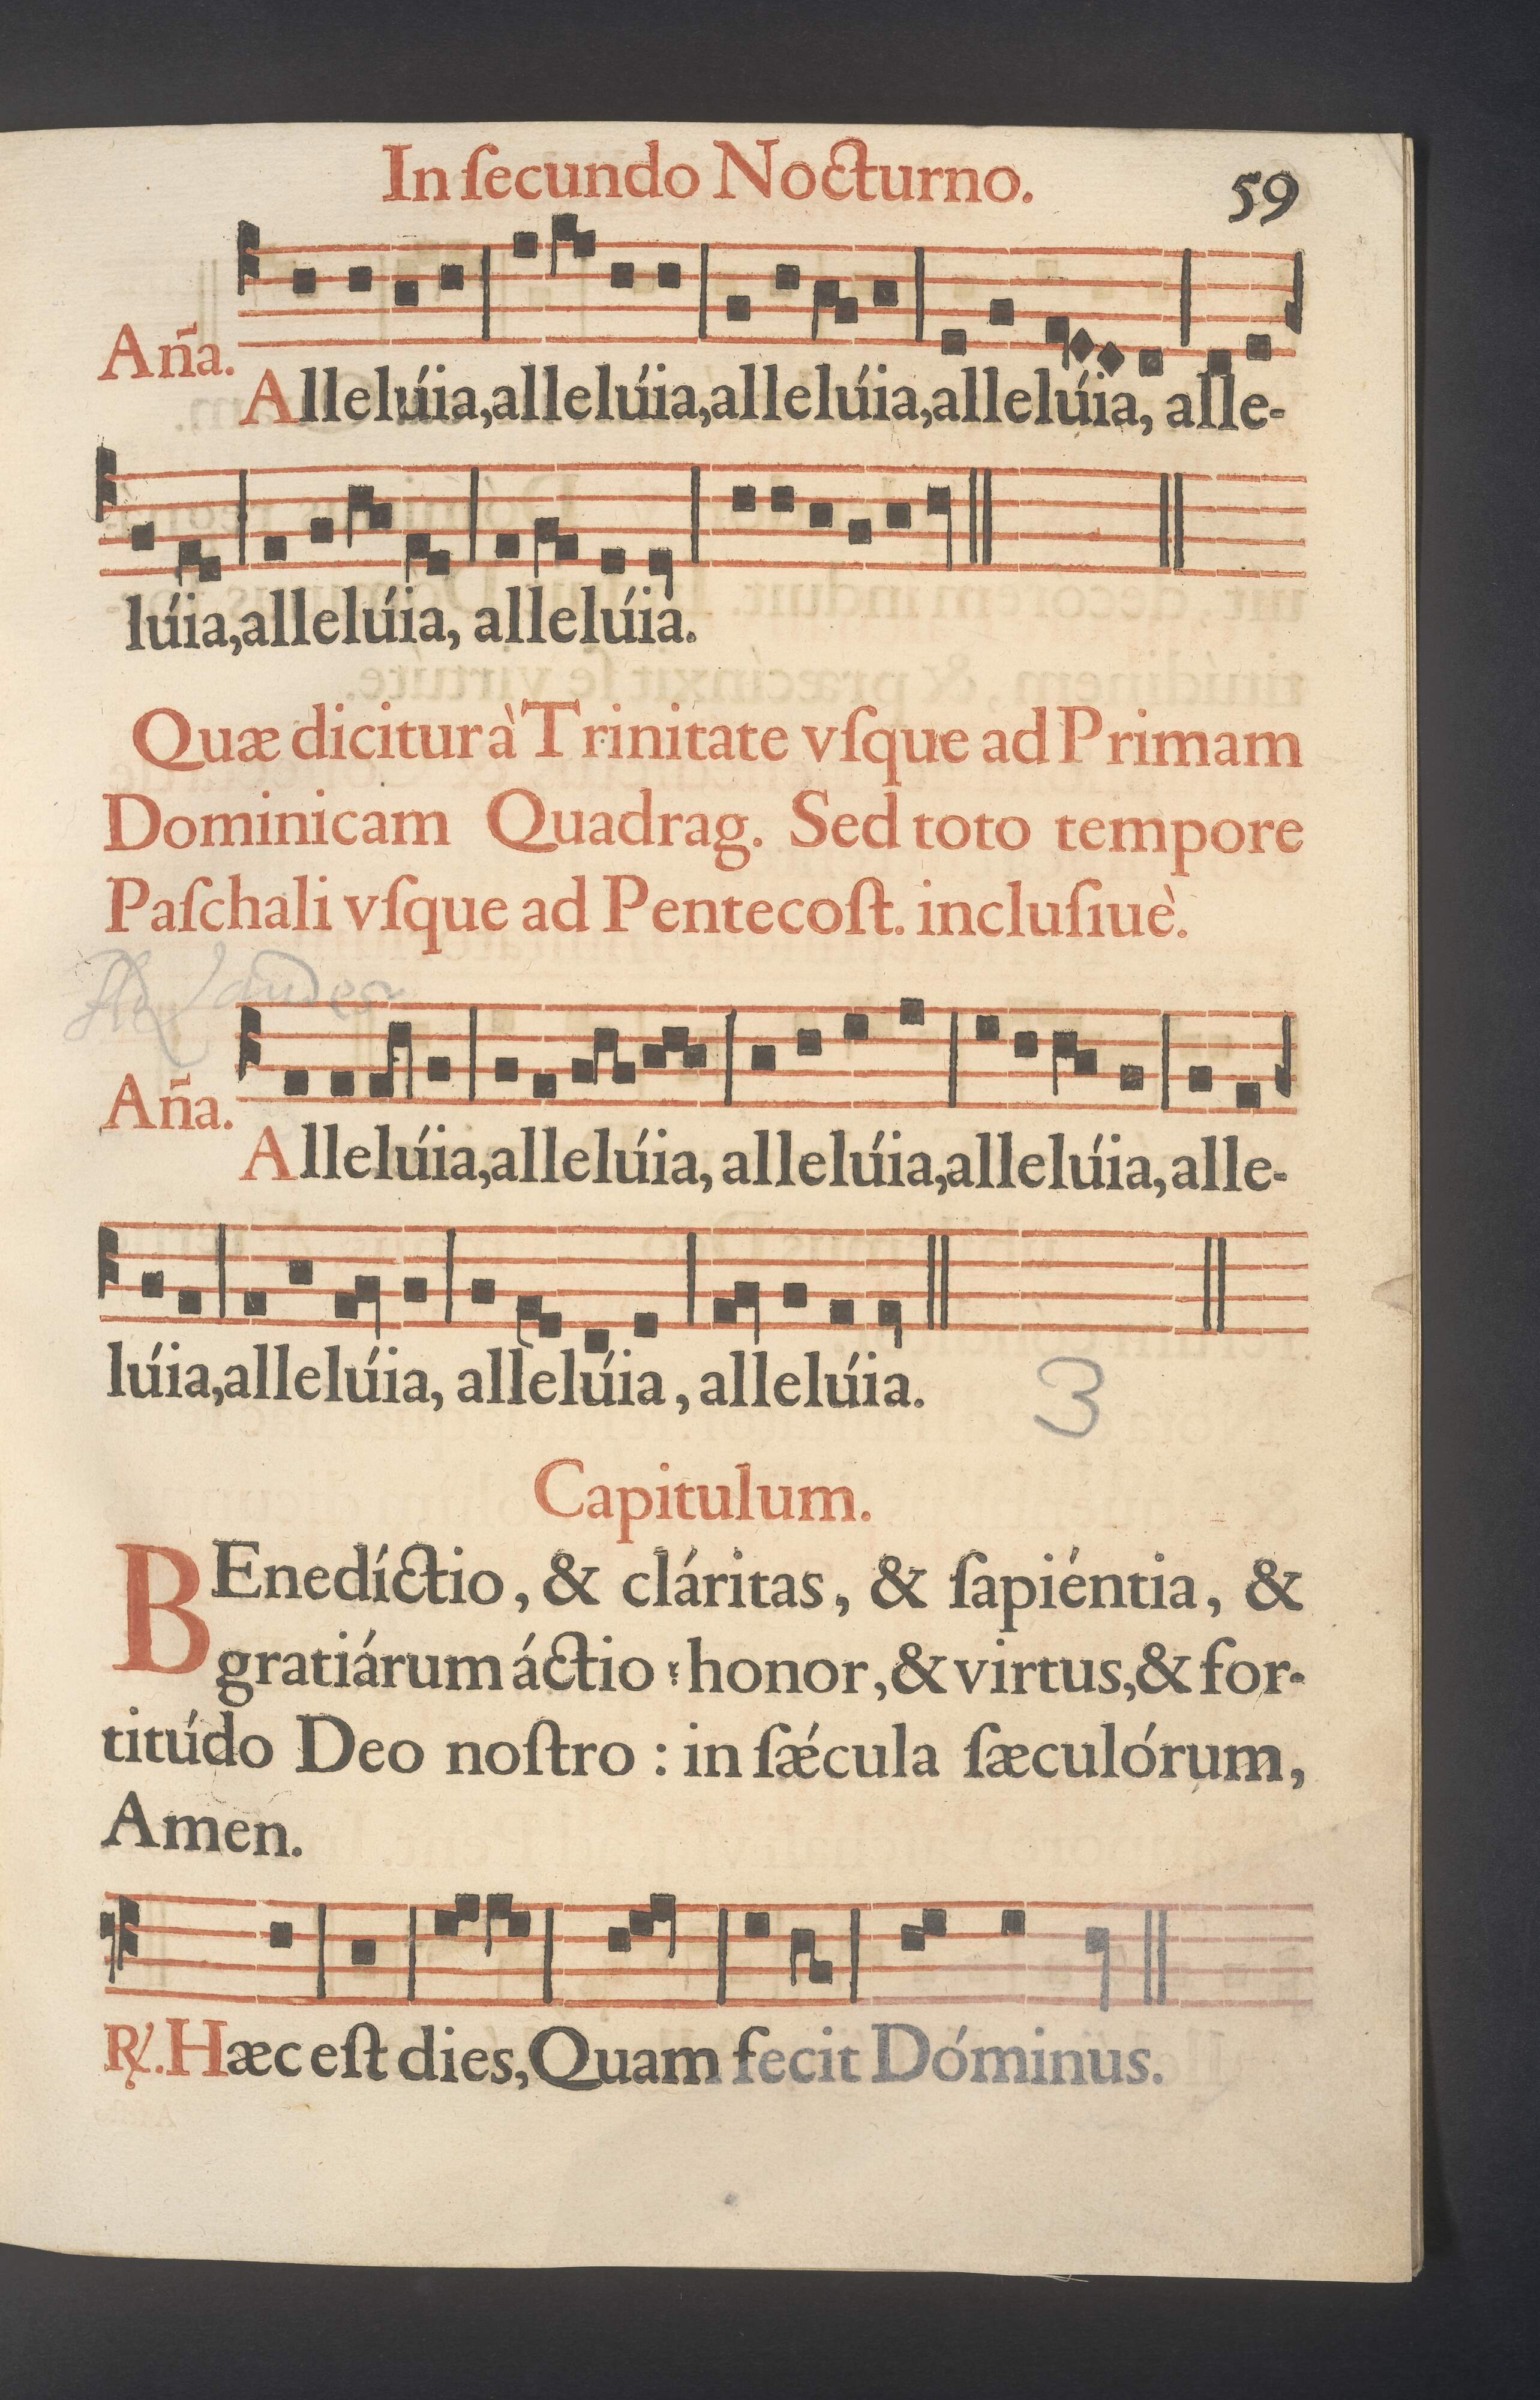 In ſecundo Nocturno. 59
Aña.
Allelúia,allelúia,allelúia,allelúia, alle-
lúia,allelúia, allelúia.
Quæ dicitur à Trinitate vſque ad Primam
Dominicam Quadrag. Sed toto tempore
Paſchali vſque ad Pentecoſt. incluſiuè.
Ad Laudes
Aña.
Allelúia,allelúia, allelúia,allelúia, alle-
lúia,allelúia, allelúia, allelúia.
3
Capitulum.
BEnedíctio, & cláritas, & ſapiéntia, &
gratiárum áctio : honor, & virtus, & for-
titúdo Deo noſtro : in ſǽcula ſæculórum,
Amen.
℟. Hæc eſt dies, Quam fecit Dóminus.